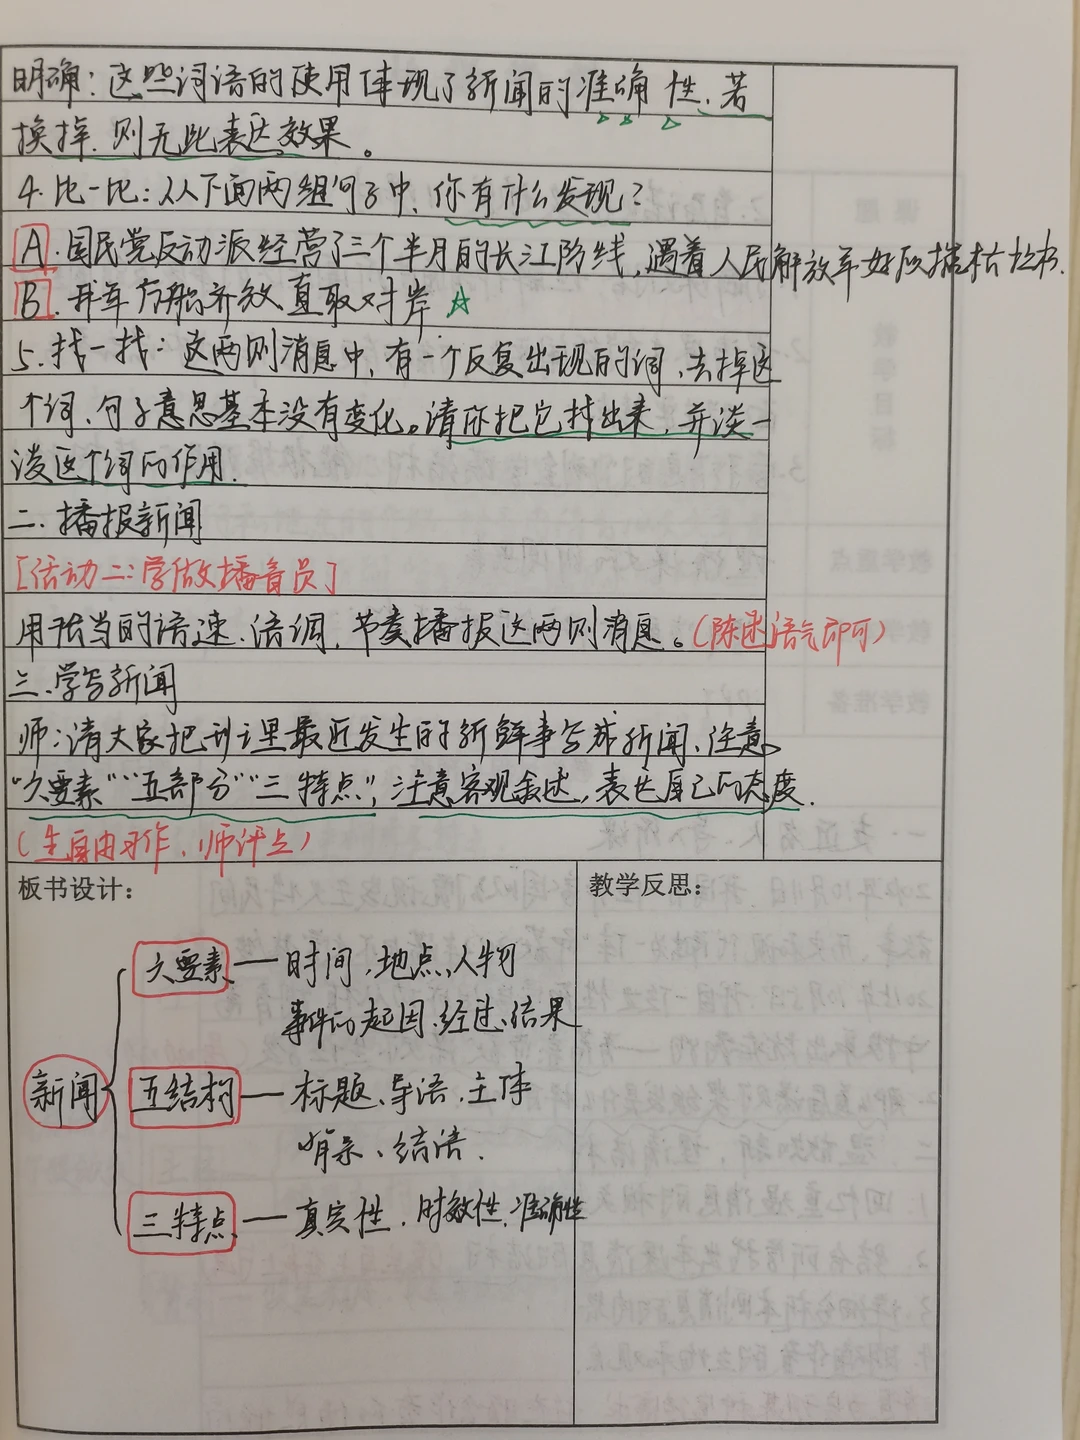 明确：这些词语的使用体现了新闻的准确性、若
换掉，则无此表达效果。
4. 比一比：从下面两组句子中，你有什么发现？
A. 国民党反动派经营了三个半月的长江防线，遇着人民解放军好似摧枯拉朽.
B. 我军万船齐放直取对岸
5. 找一找：这两则消息中，有一个反复出现的词，去掉这
个词，句子意思基本没有变化。请你把它找出来，并谈一
谈这个词的作用.
二. 播报新闻
[活动二：学做播音员]
用恰当的语速、语调、节奏播报这两则消息。（陈述语气即可）
三. 学写新闻
师：请大家把班里最近发生的新鲜事写成新闻，注意
“六要素”“五部分”“三特点”，注意客观叙述，表达自己的态度.
（生自由习作，师评点）
板书设计：
教学反思：
六要素—时间、地点、人物
事件的起因、经过、结果
新闻
五结构—标题、导语、主体
背景、结语.
三特点—真实性、时效性、准确性